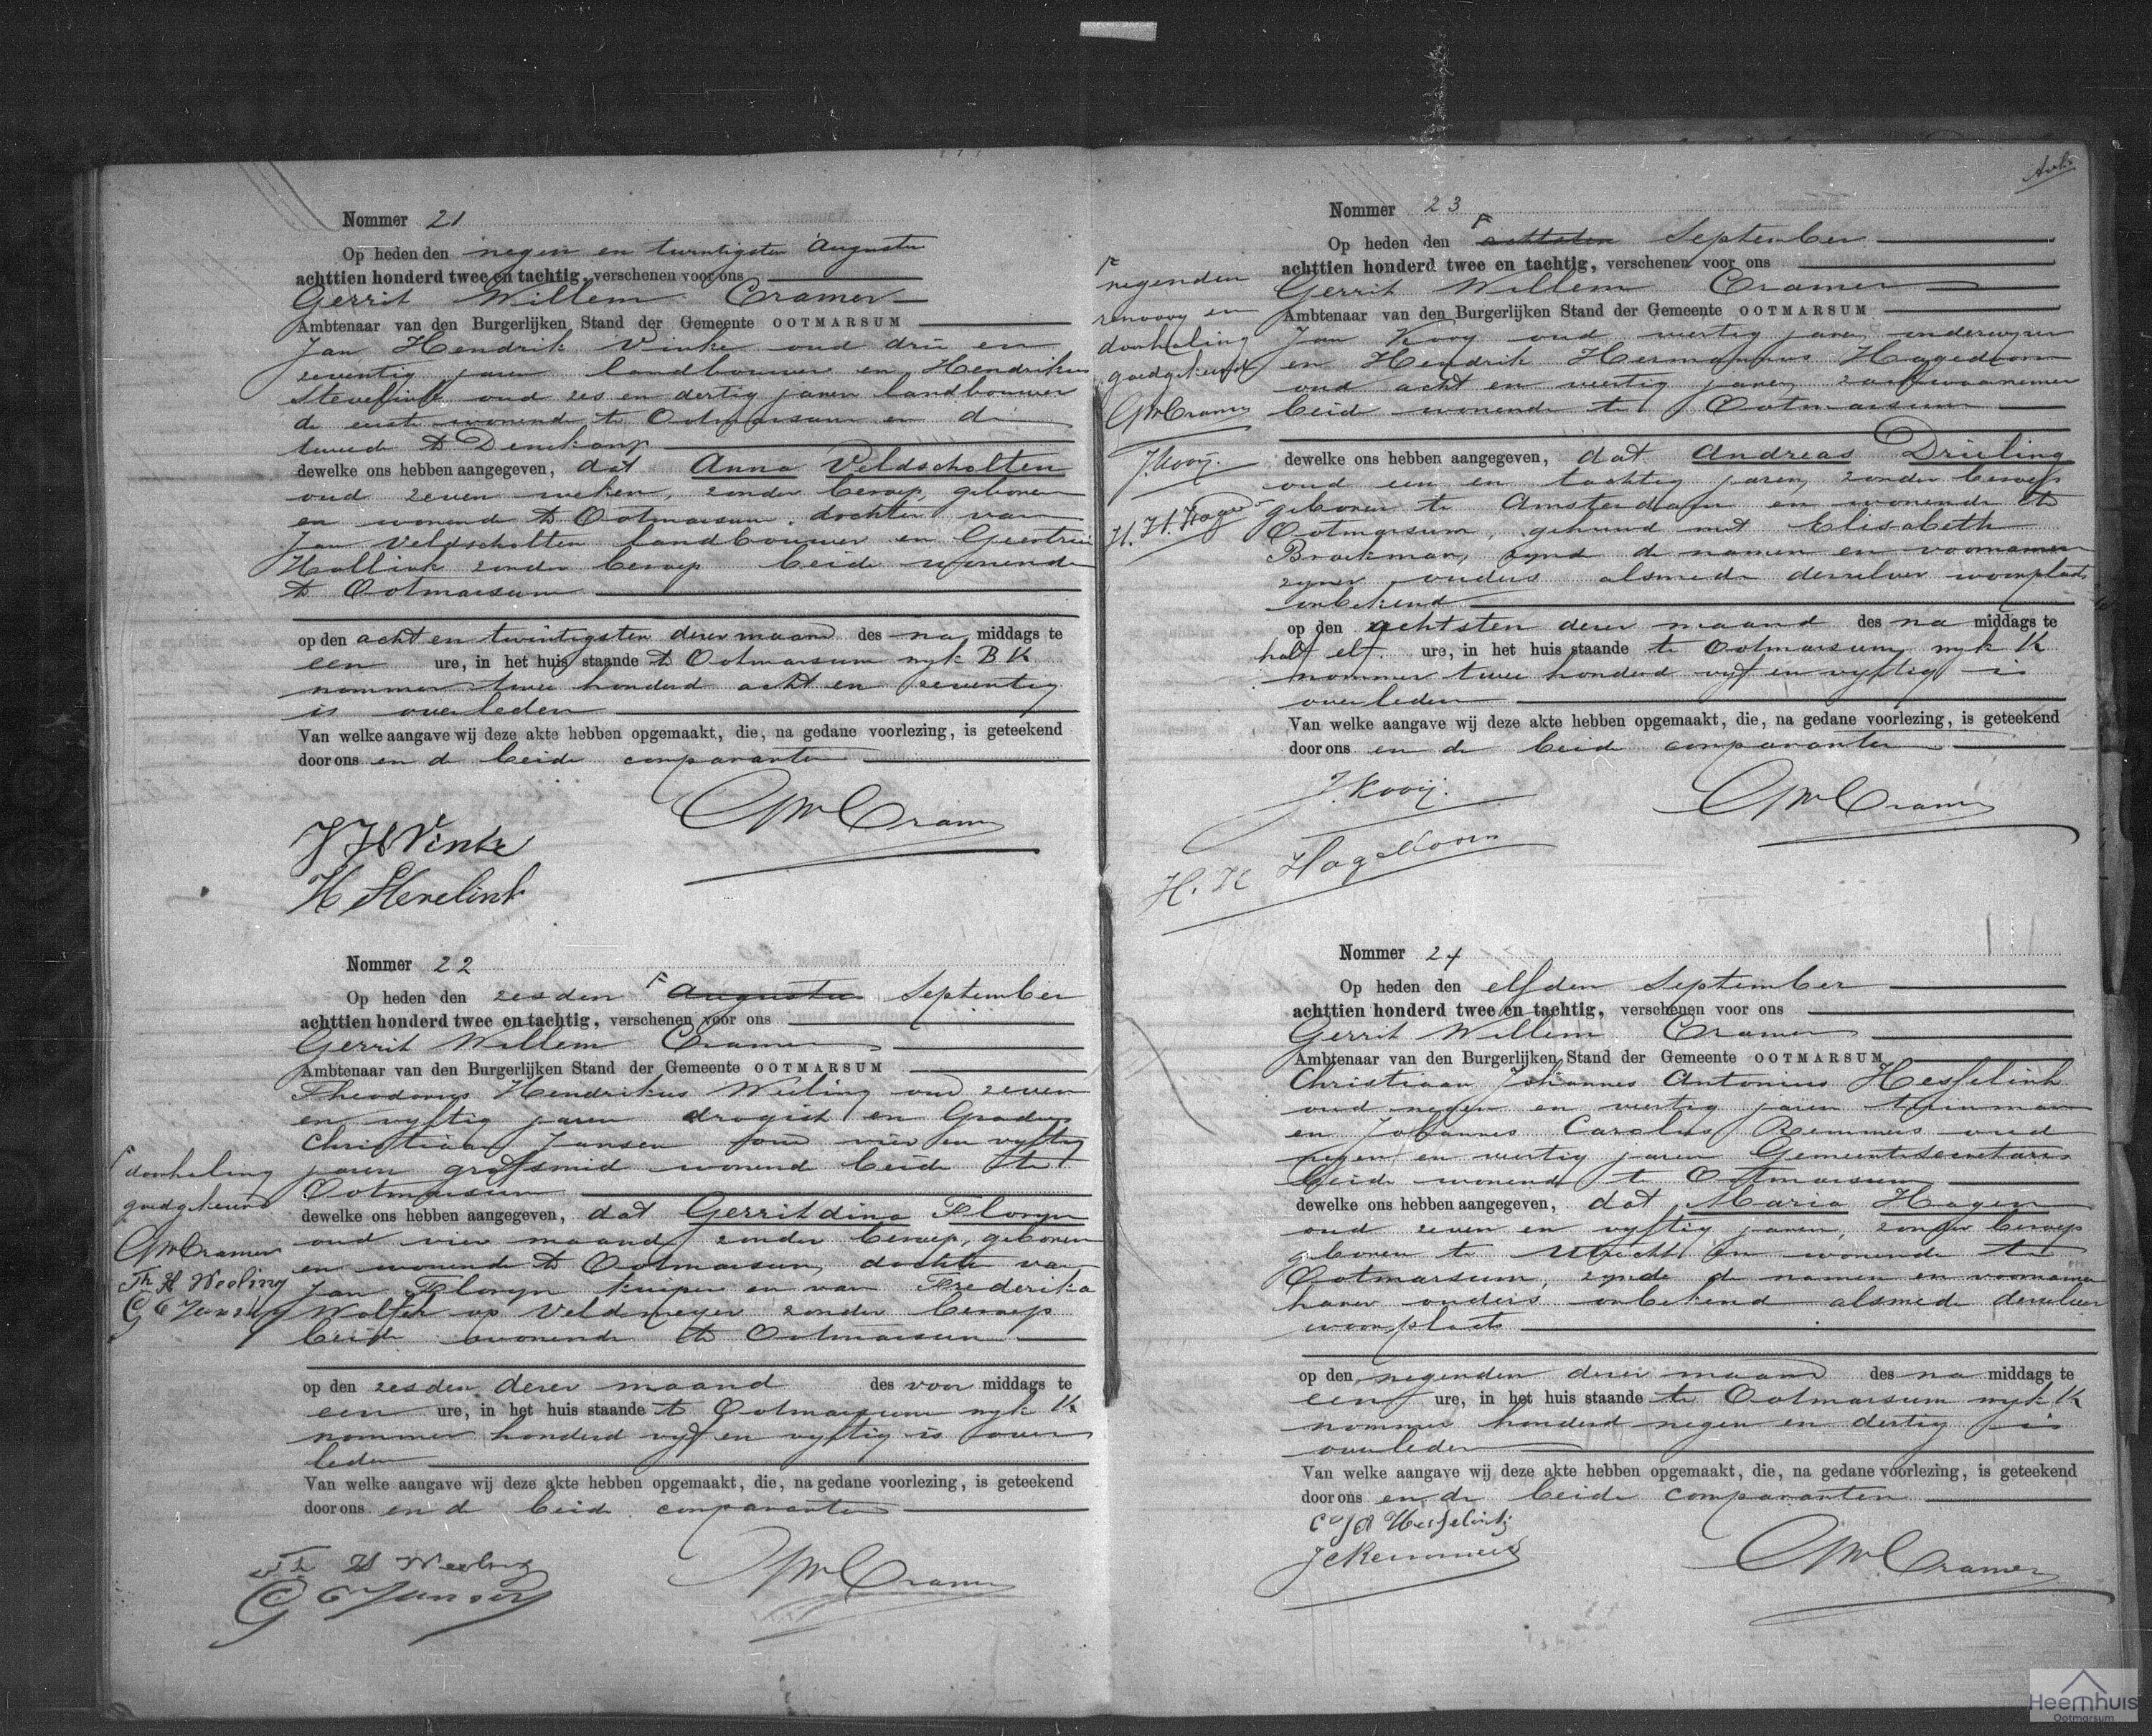 Nommer 21
Op heden den negen en twintigsten Augustus
achttien honderd twee en tachtig, verschenen voor ons
Gerrit Willem Cramer
Ambtenaar van den Burgerlijken Stand der Gemeente OOTMARSUM
Jan Hendrik Vinke oud drie en
zeventig jaren landbouwer en Hendrikus
Stevelink oud zes en dertig jaren landbouwer
de eerste wonende te Ootmarsum en de
tweede te Denekamp
dewelke ons hebben aangegeven, dat Anna Veldscholten
oud zeven weken, zonder beroep, geboren
en wonende te Ootmarsum, dochter van
Jan Veldscholten landbouwer en Geertrui
Hollink zonder beroep beide wonende
te Ootmarsum
op den acht en twintigsten dezer maand des na middags te
een ure, in het huis staande te Ootmarsum wyk B K
nommer twee honderd acht en zeventig
is overleden
Van welke aangave wij deze akte hebben opgemaakt, die, na gedane voorlezing, is geteekend
door ons en de beide comparanten
GWCramer
J H Vinke
H Stevelink
Nommer 22
Op heden den zesden Augustus September
achttien honderd twee en tachtig, verschenen voor ons
Gerrit Willem Cramer
Ambtenaar van den Burgerlijken Stand der Gemeente OOTMARSUM
Theodorus Hendrikus Weeling oud zeven
en vyftig jaren drogist en Gradus
Christiaan Jansen oud vier en vyftig
jaren grofsmid wonend beide te
Ootmarsum
dewelke ons hebben aangegeven, dat Gerritdina Floryn
oud vier maand zonder beroep, geboren
en wonende te Ootmarsum, dochter van
Jan Floryn kuiper en van Frederika
Wolfer op Veldmeyer zonder beroep
beide wonende te Ootmarsum
op den zesden dezer maand des voor middags te
een ure, in het huis staande te Ootmarsum wyk K
nommer honderd vyf en vyftig is over
leden
Van welke aangave wij deze akte hebben opgemaakt, die, na gedane voorlezing, is geteekend
door ons en de beide comparanten
doorhaling
goedgekeurd
GWCramer
Th H Weeling
G C Jansen
Th H Weeling
G C Jansen
GWCramer
Nommer 23
Op heden den achtsten September
achttien honderd twee en tachtig, verschenen voor ons
Gerrit Willem Cramer
Ambtenaar van den Burgerlijken Stand der Gemeente OOTMARSUM
Jan Kooy oud veertig jaren onderwyzer
en Hendrik Hermannus Hagedoorn
oud acht en veertig jaren, zaakwaarnemer
beide wonende te Ootmarsum
dewelke ons hebben aangegeven, dat Andreas Drieling
oud een en tachtig jaren, zonder beroep
geboren te Amsterdam en wonende te
Ootmarsum, gehuwd met Elisabeth
Broekman, zynd de namen en voornamen
zyner ouders alsmede derzelver woonplaats
onbekend
op den achtsten dezer maand des na middags te
half elf ure, in het huis staande te Ootmarsum wyk K
nommer twee honderd vyf en vyftig is
overleden
Van welke aangave wij deze akte hebben opgemaakt, die, na gedane voorlezing, is geteekend
door ons en de beide comparanten
negenden
renvooy en
doorhaling
goedgekeurd
GWCramer
J. Kooij.
H. H. Hage
J. Kooij.
GWCramer
H. H Hagedoorn
Nommer 24
Op heden den elfden September
achttien honderd twee en tachtig, verschenen voor ons
Gerrit Willem Cramer
Ambtenaar van den Burgerlijken Stand der Gemeente OOTMARSUM
Christiaan Johannes Antonius Hesselink
oud negen en veertig jaren tuinman
en Johannes Carolus Remmers oud
negen en veertig jaren Gemeentesecretaris
beide wonend te Ootmarsum
dewelke ons hebben aangegeven, dat Maria Hagen
oud zeven en vyftig jaren, zonder beroep
geboren te Utrecht en wonende te
Ootmarsum, zynde de namen en voornamen
harer ouders onbekend alsmede derzelver
woonplaats
op den negenden dezer maand des na middags te
een ure, in het huis staande te Ootmarsum wyk K
nommer honderd negen en dertig is
overleden
Van welke aangave wij deze akte hebben opgemaakt, die, na gedane voorlezing, is geteekend
door ons en de beide comparanten
C J A Hesselink
J C Remmers
GWCramer
Heemhuis
Ootmarsum